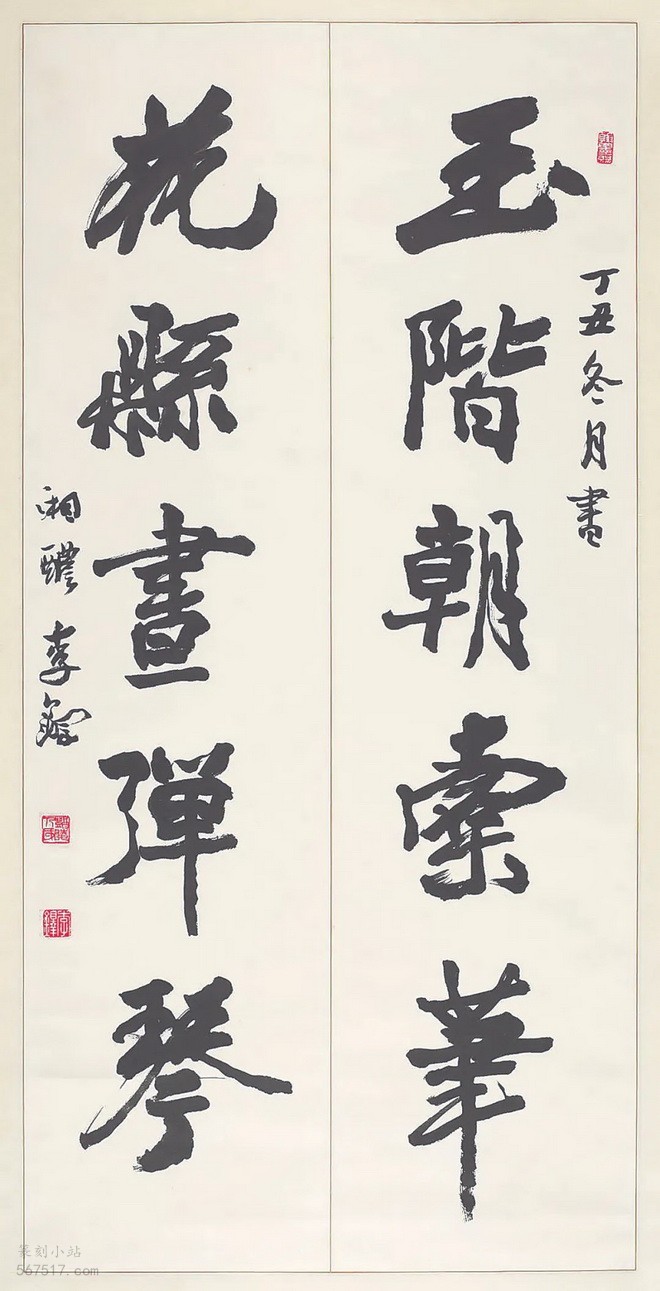 玉階朝索筆
丁丑冬月書
花縣晝彈琴
湘醴 李鐸
李鐸
篆刻小站
567517.com